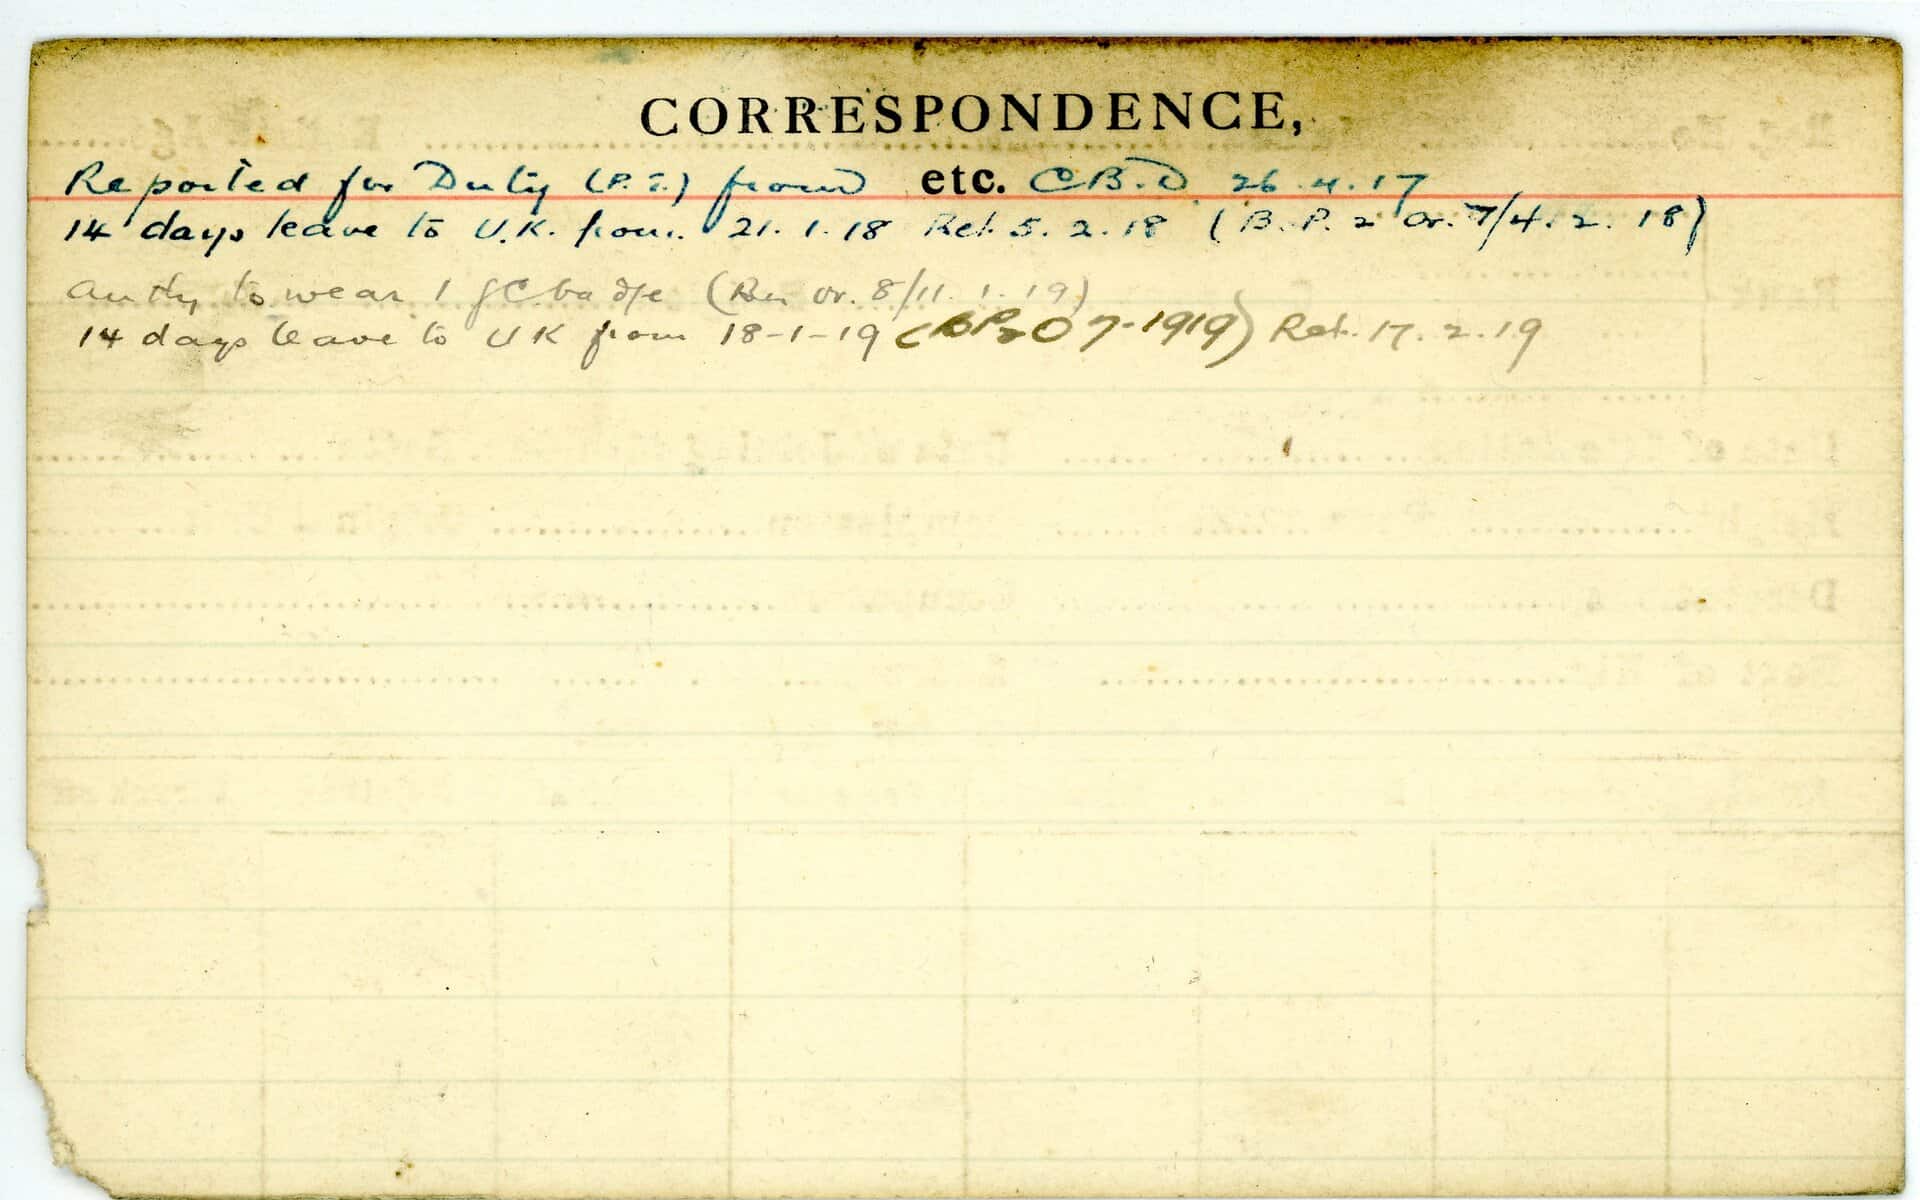 CORRESPONDENCE,
Reported for Duty (P.2.) from etc. C.B.D. 26.4.17
14 days leave to U.K. from. 21.1.18 Ret. 5.2.18 (B.P. 2 Or. 7/4.2.18)
Authy to wear 1 GC badge (Bn Or. 8/11.1.19)
14 days leave to UK from 18-1-19 (BP2O 7-1919) Ret. 17.2.19